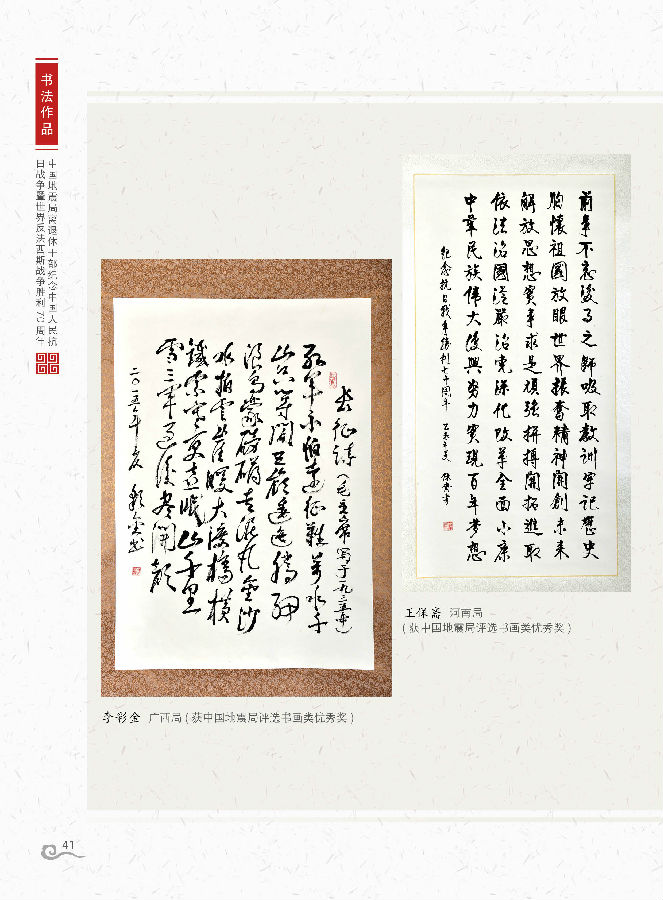 书法作品
中国地震局离退休干部纪念中国人民抗
日战争暨世界反法西斯战争胜利70周年
前事不忘後事之師吸取教訓牢記歷史
胸懷祖國放眼世界振奮精神開創未来
解放思想實事求是頑強拼搏開拓進取
依法治國從嚴治党深化改革全面小康
中華民族偉大復興努力實現百年梦想
纪念抗日戰争勝利七十周年 乙未之夏
长征詩（毛主席寫于一九三五年）
红军不怕遠征難萬水千
山只等閒五嶺逶迤腾细
浪烏蒙磅礴走泥丸金沙
水拍雲崖暖大渡橋横
鐵索寒更喜岷山千里
雪三軍过後尽開颜
二〇一五年夏 彩金书
王保斋 河南局
(获中国地震局评选书画类优秀奖)
李彩金 广西局(获中国地震局评选书画类优秀奖)
41